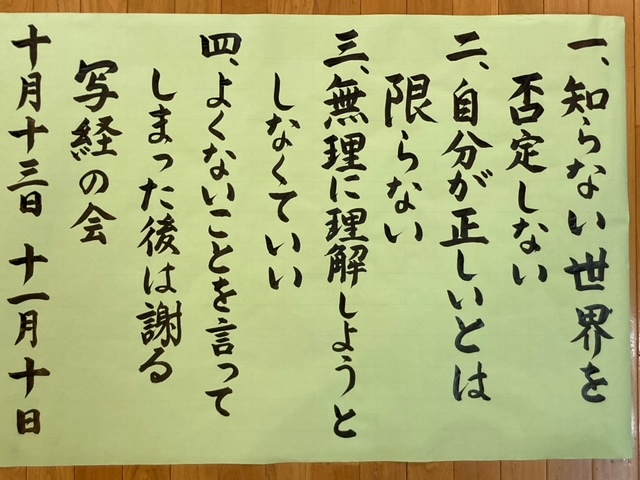 一、知らない世界を
否定しない
二、自分が正しいとは
限らない
三、無理に理解しようと
しなくていい
四、よくないことを言って
しまった後は謝る
写経の会
十月十三日 十一月十日